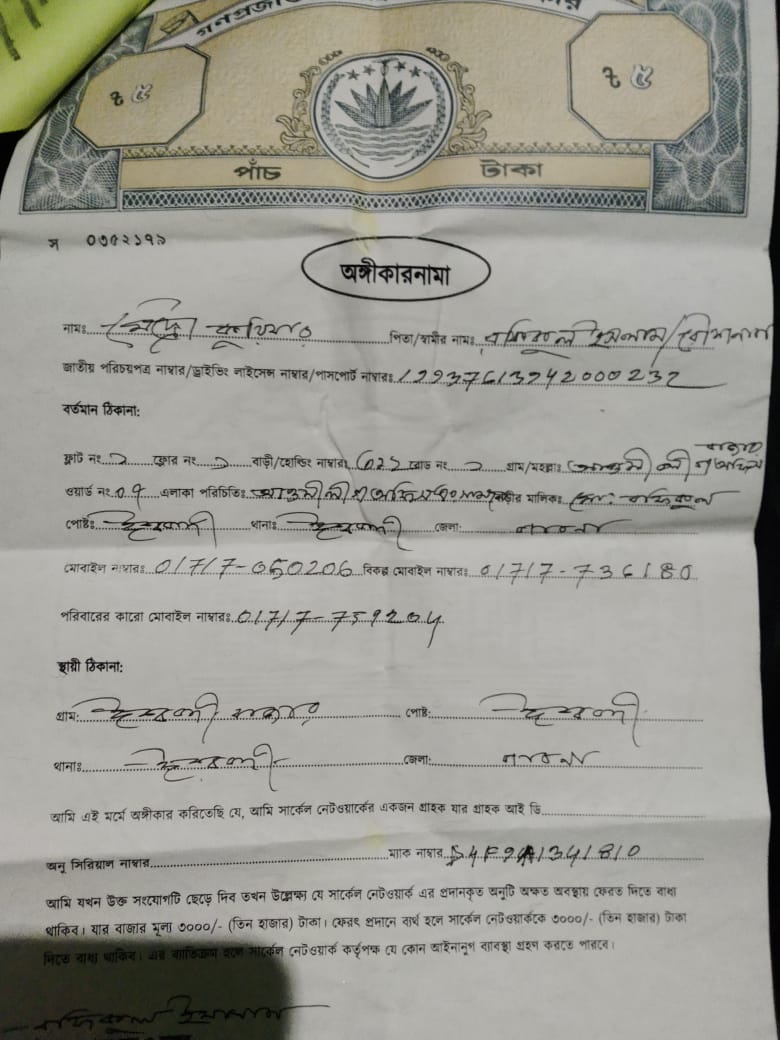 গণপ্রজা
৳ ৫
৳ ৫
পাঁচ টাকা
স ০৩৫২১৭৯
অঙ্গীকারনামা
নামঃ পিতা/স্বামীর নামঃ
জাতীয় পরিচয়পত্র নাম্বার/ড্রাইভিং লাইসেন্স নাম্বার/পাসপোর্ট নাম্বারঃ 19937613942000232
বর্তমান ঠিকানা:
ফ্লাট নং ফ্লোর নং বাড়ী/হোল্ডিং নাম্বারঃ রোড নং গ্রাম/মহল্লাঃ
ওয়ার্ড নং 07 এলাকা পরিচিতিঃ বাড়ীর মালিকঃ
পোষ্টঃ ঈশ্বরদী থানাঃ ঈশ্বরদী জেলা: পাবনা
মোবাইল নাম্বারঃ 01717-050206 বিকল্প মোবাইল নাম্বারঃ 01717-736180
পরিবারের কারো মোবাইল নাম্বারঃ 01717-759204
স্থায়ী ঠিকানা:
গ্রাম: ঈশ্বরদী বাজার পোষ্ট: ঈশ্বরদী
থানাঃ ঈশ্বরদী জেলা: পাবনা
আমি এই মর্মে অঙ্গীকার করিতেছি যে, আমি সার্কেল নেটওয়ার্কের একজন গ্রাহক যার গ্রাহক আই ডি
অনু সিরিয়াল নাম্বার ম্যাক নাম্বার
আমি যখন উক্ত সংযোগটি ছেড়ে দিব তখন উল্লেক্ষ্য যে সার্কেল নেটওয়ার্ক এর প্রদানকৃত অনুটি অক্ষত অবস্থায় ফেরত দিতে বাধ্য
থাকিব। যার বাজার মূল্য ৩০০০/- (তিন হাজার) টাকা। ফেরৎ প্রদানে ব্যর্থ হলে সার্কেল নেটওয়ার্ককে ৩০০০/- (তিন হাজার) টাকা
দিতে বাধ্য থাকিব। এর ব্যতিক্রম হলে সার্কেল নেটওয়ার্ক কর্তৃপক্ষ যে কোন আইনানুগ ব্যাবস্থা গ্রহণ করতে পারবে।